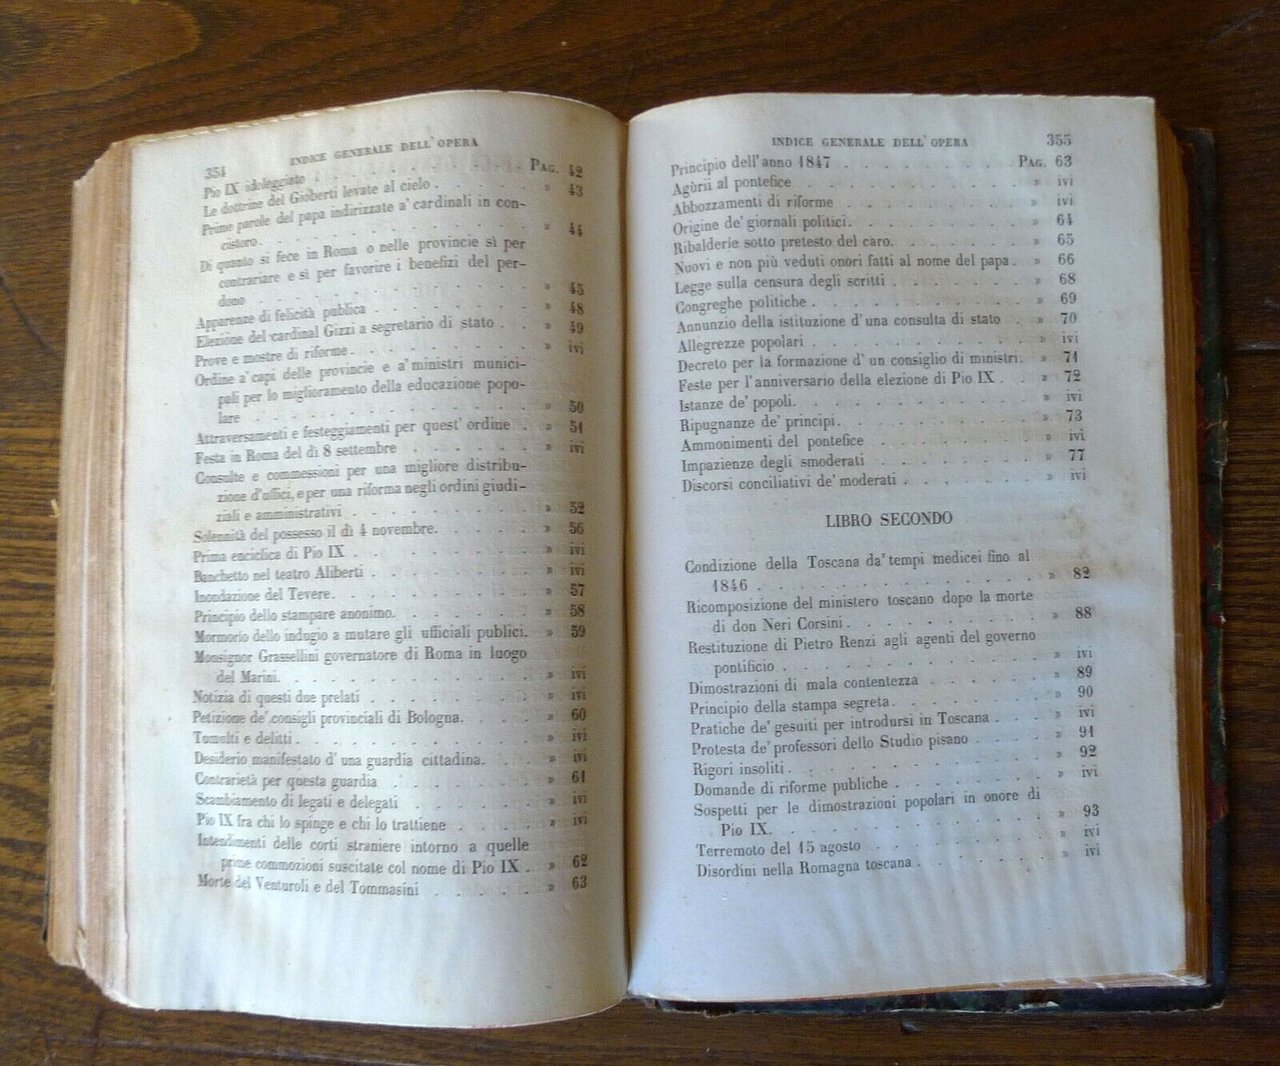 354 INDICE GENERALE DELL' OPERA
Pio IX idoleggiato . . . . . . . PAG. 42
Le dottrine del Gioberti levate al cielo . . . . » 43
Prime parole del papa indirizzate a' cardinali in con-
cistoro . . . . . . . . . . » 44
Di quanto si fece in Roma o nelle provincie sì per
contrariare e sì per favorire i benefizi del per-
dono . . . . . . . . . . » 45
Apparenze di felicità publica . . . . . . » 48
Elezione del cardinal Gizzi a segretario di stato . . » 49
Prove e mostre di riforme . . . . . . . » ivi
Ordine a' capi delle provincie e a' ministri munici-
pali per lo miglioramento della educazione popo-
lare . . . . . . . . . . » 50
Attraversamenti e festeggiamenti per quest' ordine . » 51
Festa in Roma del dì 8 settembre . . . . . » ivi
Consulte e commessioni per una migliore distribu-
zione d'uffici, e per una riforma negli ordini giudi-
ziali e amministrativi . . . . . . . » 52
Solennità del possesso il dì 4 novembre. . . . » 56
Prima enciclica di Pio IX . . . . . . . » ivi
Banchetto nel teatro Aliberti . . . . . . » ivi
Inondazione del Tevere. . . . . . . . » 57
Principio dello stampare anonimo. . . . . . » 58
Mormorio dello indugio a mutare gli ufficiali publici. » 59
Monsignor Grassellini governatore di Roma in luogo
del Marini. . . . . . . . . . » ivi
Notizia di questi due prelati . . . . . . » ivi
Petizione de' consigli provinciali di Bologna. . . . » 60
Tumulti e delitti . . . . . . . . . » ivi
Desiderio manifestato d' una guardia cittadina. . . » ivi
Contrarietà per questa guardia . . . . . . » 61
Scambiamento di legati e delegati . . . . . » ivi
Pio IX fra chi lo spinge e chi lo trattiene . . . . » ivi
Intendimenti delle corti straniere intorno a quelle
prime commozioni suscitate col nome di Pio IX . » 62
Morte del Venturoli e del Tommasini . . . . » 63
INDICE GENERALE DELL' OPERA 355
Principio dell' anno 1847 . . . . . . PAG. 63
Agùrii al pontefice . . . . . . . . » ivi
Abbozzamenti di riforme . . . . . . . » ivi
Origine de' giornali politici . . . . . . . » 64
Ribalderíe sotto pretesto del caro. . . . . . » 65
Nuovi e non più veduti onori fatti al nome del papa . » 66
Legge sulla censura degli scritti . . . . . . » 68
Congreghe politiche . . . . . . . . » 69
Annunzio della istituzione d' una consulta di stato . » 70
Allegrezze popolari . . . . . . . . » ivi
Decreto per la formazione d' un consiglio di ministri. » 71
Feste per l' anniversario della elezione di Pio IX . . » 72
Istanze de' popoli. . . . . . . . . » ivi
Ripugnanze de' principi. . . . . . . . » 73
Ammonimenti del pontefice . . . . . . . » ivi
Impazienze degli smoderati . . . . . . . » 77
Discorsi conciliativi de' moderati . . . . . . » ivi
LIBRO SECONDO
Condizione della Toscana da' tempi medicei fino al
1846 . . . . . . . . . . » 82
Ricomposizione del ministero toscano dopo la morte
di don Neri Corsini . . . . . . . . » 88
Restituzione di Pietro Renzi agli agenti del governo
pontificio . . . . . . . . . . » ivi
Dimostrazioni di mala contentezza . . . . . » 89
Principio della stampa segreta . . . . . . . » 90
Pratiche de' gesuiti per introdursi in Toscana . . . » ivi
Protesta de' professori dello Studio pisano . . . . » 91
Rigori insoliti . . . . . . . . . . » 92
Domande di riforme publiche . . . . . . . » ivi
Sospetti per le dimostrazioni popolari in onore di
Pio IX. . . . . . . . . . . » 93
Terremoto del 15 agosto . . . . . . . » ivi
Disordini nella Romagna toscana . . . . . . » ivi